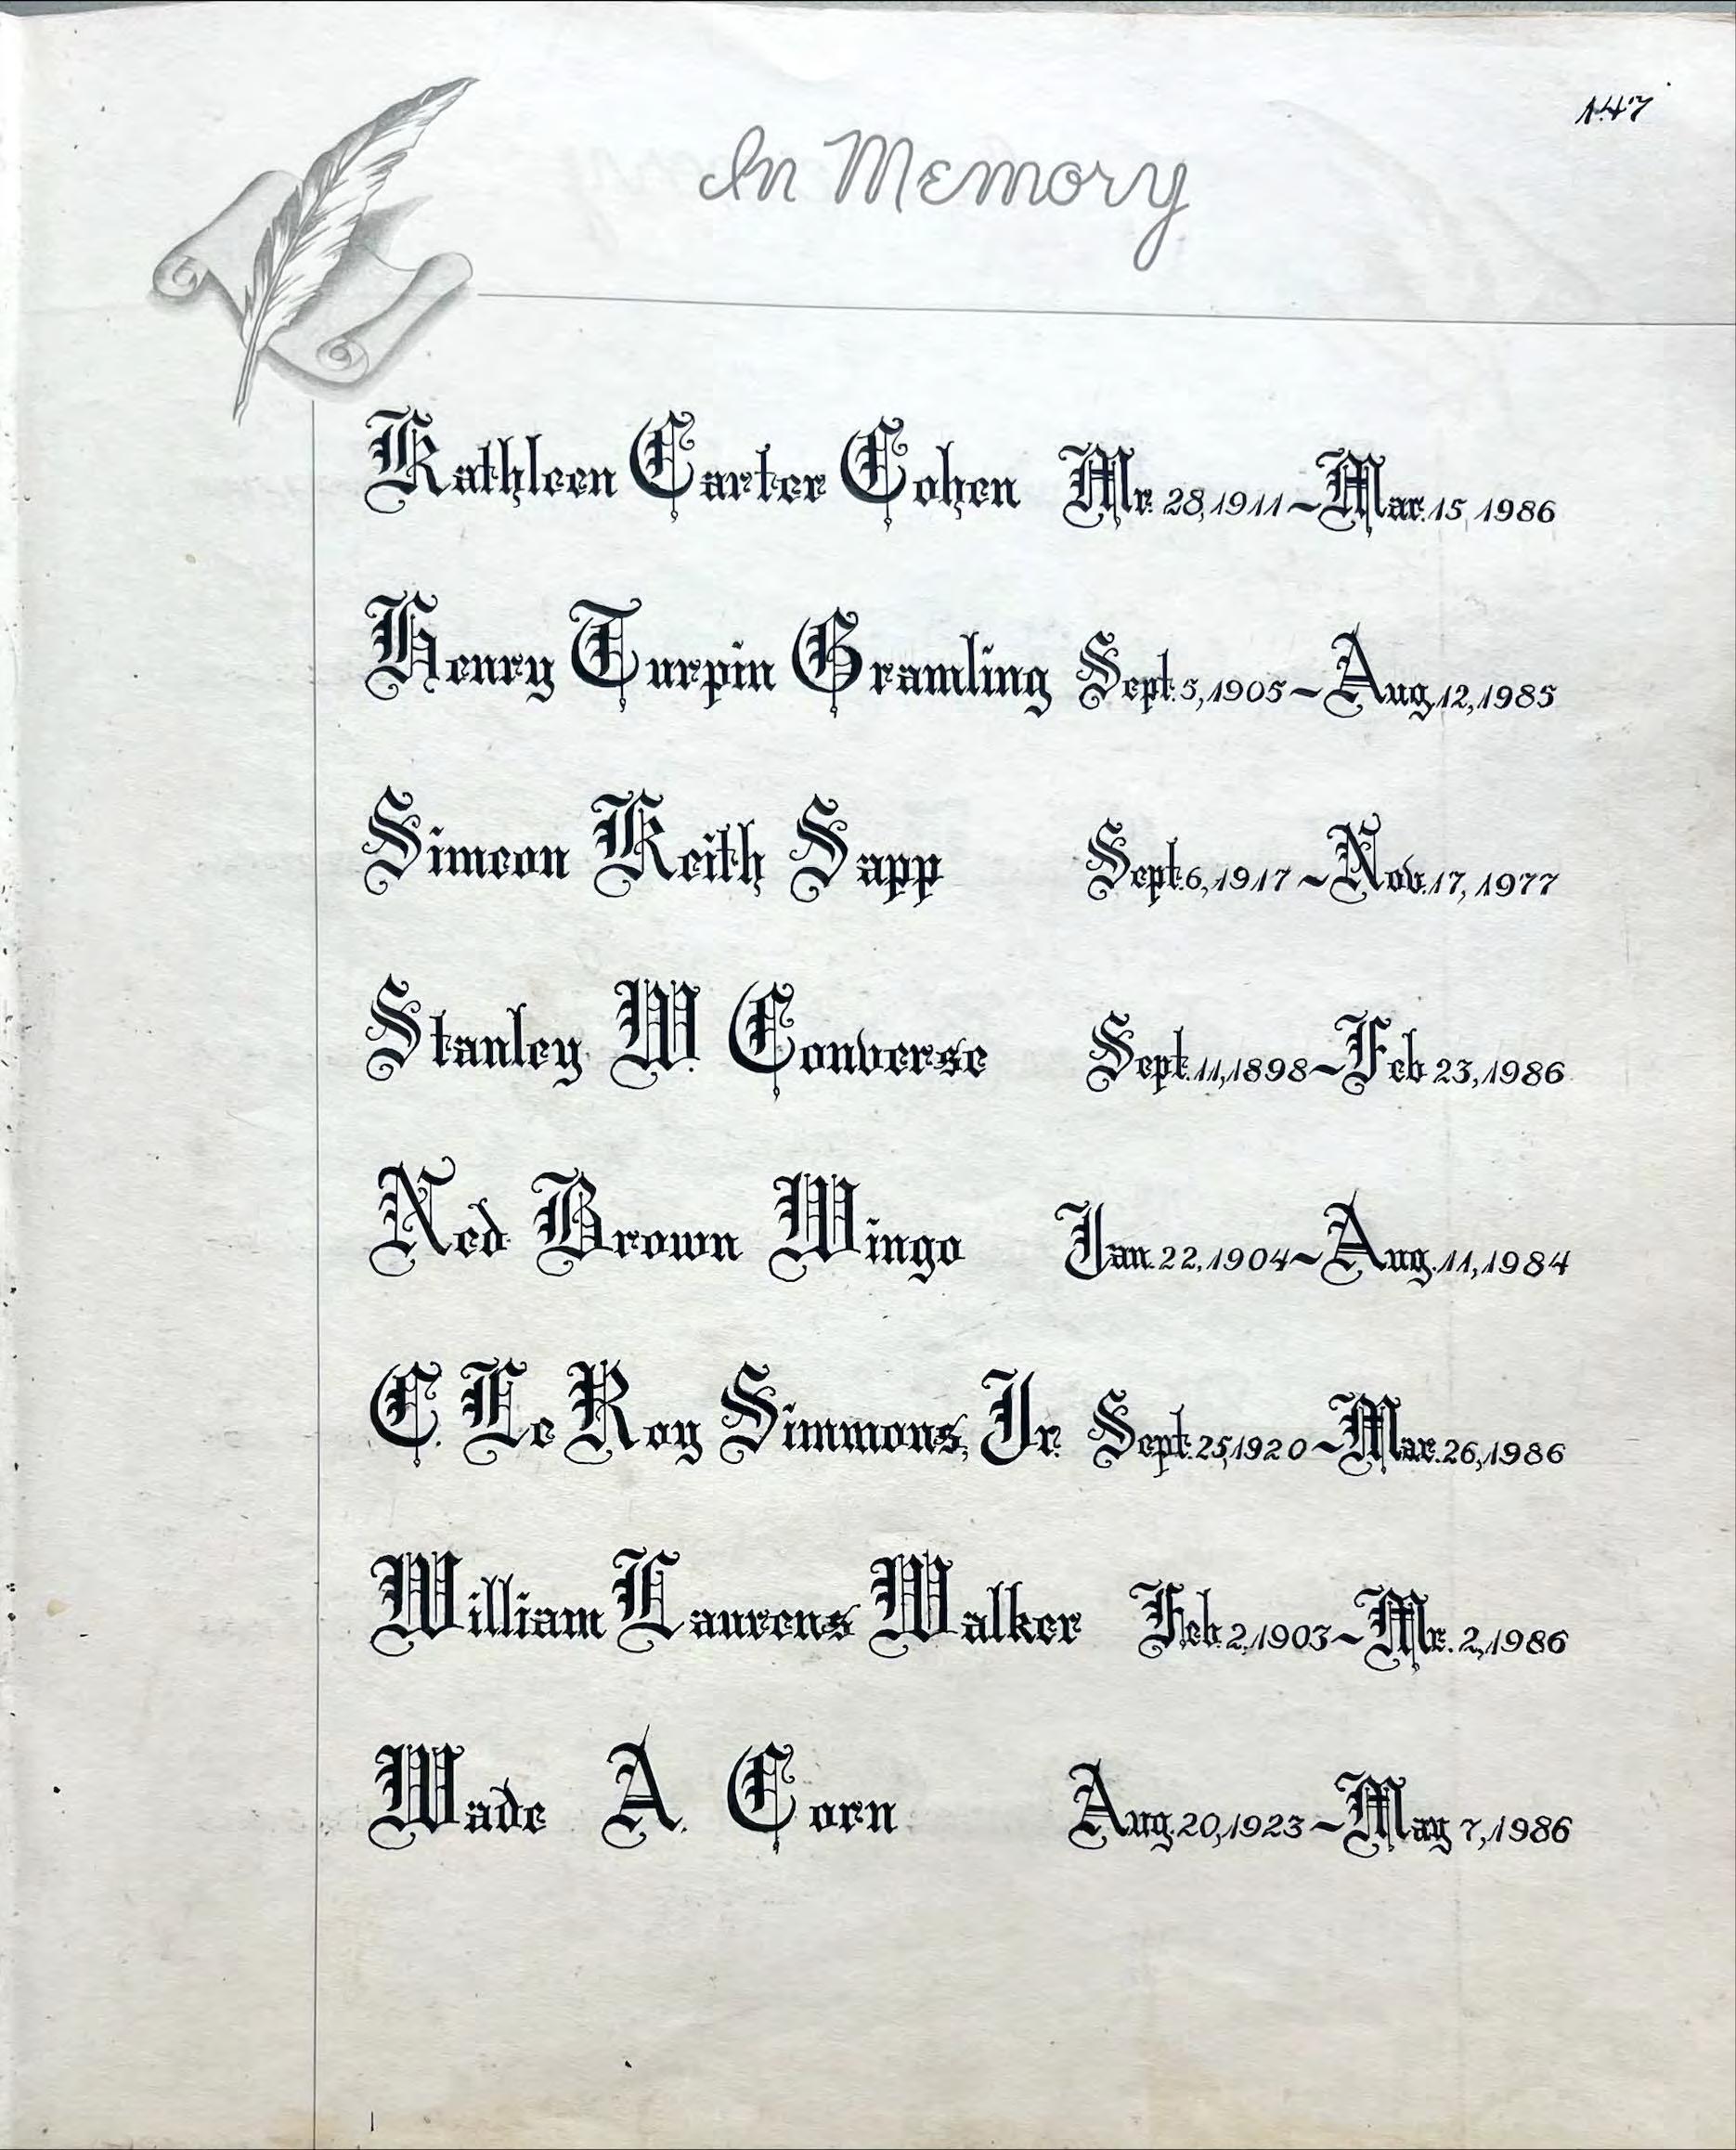 147
In Memory
Kathleen Carter Cohen Mr. 28, 1911 ~ Mar. 15, 1986
Henry Turpin Gramling Sept. 5, 1905 ~ Aug. 12, 1985
Simeon Keith Sapp Sept. 6, 1917 ~ Nov. 17, 1977
Stanley W. Converse Sept. 11, 1898 ~ Feb 23, 1986
Ned Brown Wingo Jan. 22, 1904 ~ Aug. 11, 1984
C. Le Roy Simmons, Jr. Sept. 25, 1920 ~ Mar. 26, 1986
William Laurens Walker Feb. 2, 1903 ~ Mr. 2, 1986
Wade A. Corn Aug. 20, 1923 ~ May 7, 1986